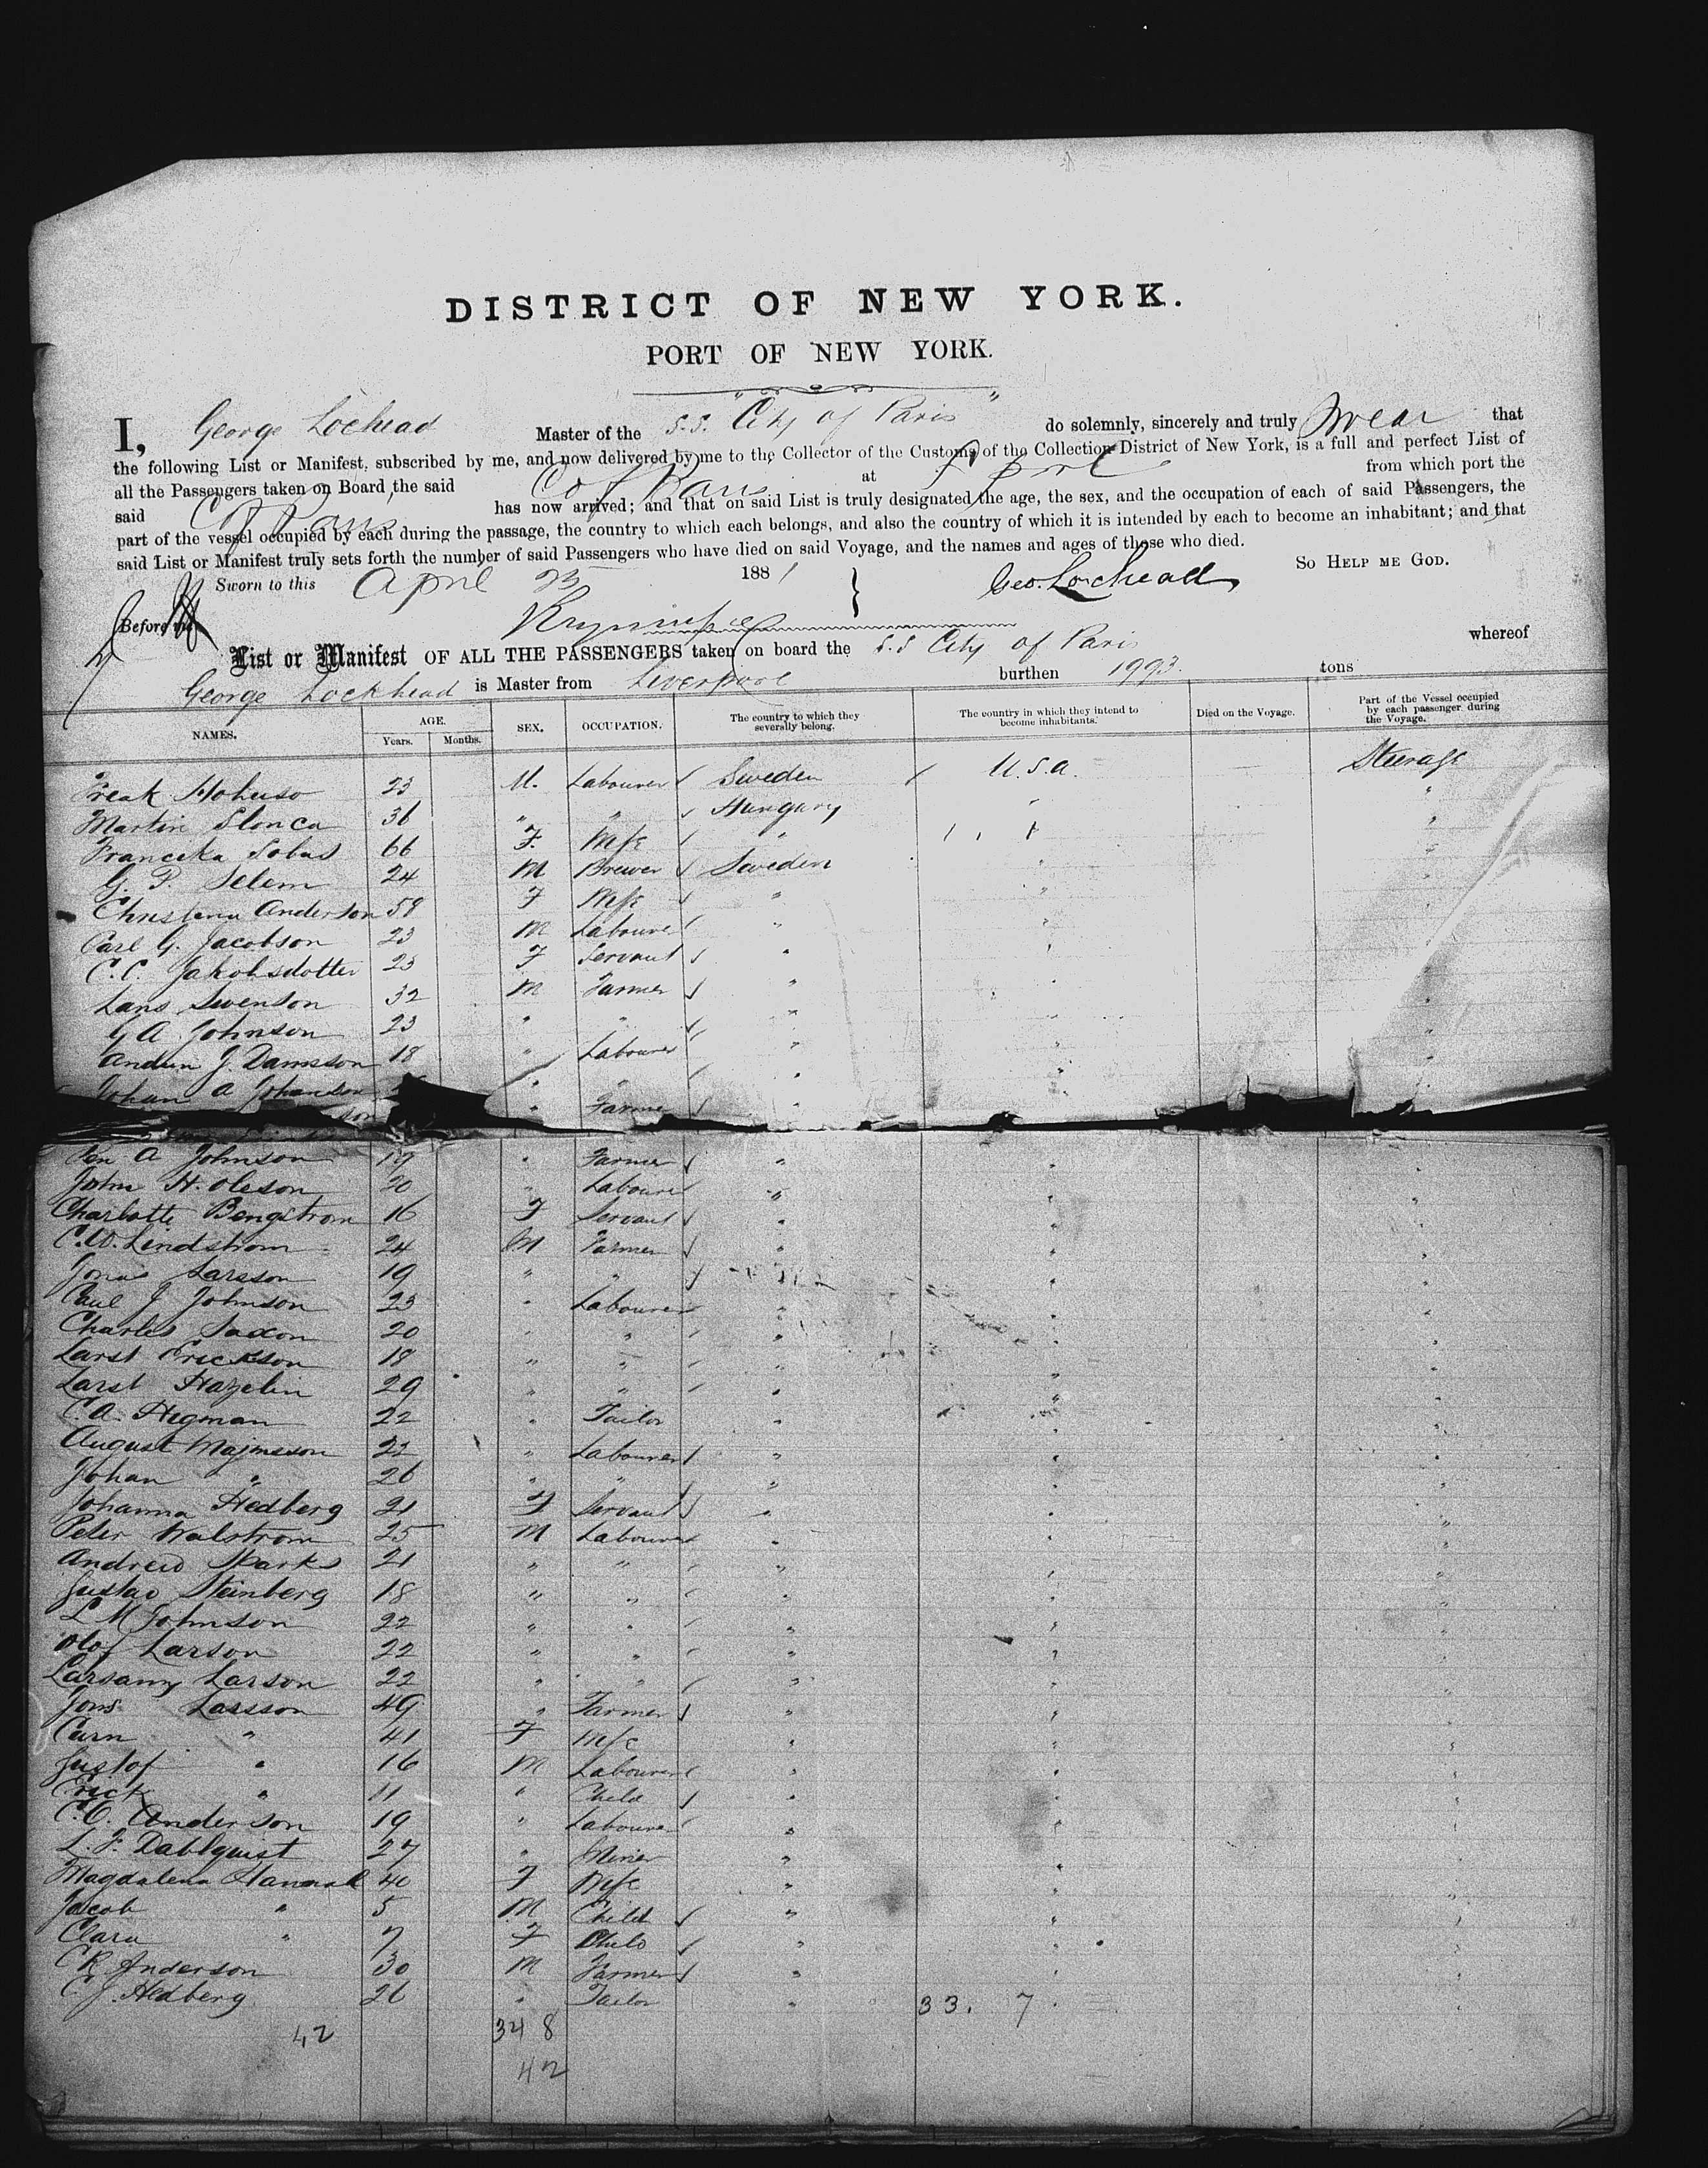 DISTRICT OF NEW YORK.
PORT OF NEW YORK.
I, George Lochead Master of the S.S. "City of Paris" do solemnly, sincerely and truly swear that
the following List or Manifest, subscribed by me, and now delivered by me to the Collector of the Customs of the Collection District of New York, is a full and perfect List of
all the Passengers taken on Board the said C of Paris at L'pool from which port the
said C of Paris has now arrived; and that on said List is truly designated the age, the sex, and the occupation of each of said Passengers, the
part of the vessel occupied by each during the passage, the country to which each belongs, and also the country of which it is intended by each to become an inhabitant; and that
said List or Manifest truly sets forth the number of said Passengers who have died on said Voyage, and the names and ages of those who died.
So HELP ME GOD.
Sworn to this April 25 1881 } Geo. Lochead
Before me
List or Manifest OF ALL THE PASSENGERS taken on board the S.S City of Paris whereof
George Lockhead is Master from Liverpool burthen 1993 tons
NAMES. AGE. Years. Months. SEX. OCCUPATION. The country to which they severally belong. The country in which they intend to become inhabitants. Died on the Voyage. Part of the Vessel occupied by each passenger during the Voyage.
23 M. Labourer Sweden U.S.A. Steerage
Martin Slonca 36 " " Hungary " "
Franceka Sobas 66 F. Wife " "
G. P. Selem 24 M Brewer Sweden " "
Christena Anderson 58 F Wife " "
Carl G. Jacobson 23 M Labourer " "
C. C. Jakobsdotter 23 F Servant " "
Lars Swenson 32 M Farmer " "
G A Johnson 23 " " " "
J. 18 " Labourer " " "
Johan A Johanson " " " "
son " Farmer "
A Johnson 19 " Farmer " " "
John H. Oleson 20 " Labourer " " "
Charlotte Bengstrom 16 F Servant " " "
C. W. Lindstrom 24 M Farmer " " "
Jonas Larsson 19 " " " "
Paul J Johnson 23 " Labourer " " "
Charles Saxon 20 " " " " "
Larst Erickson 18 " " " " "
Larst Hazelin 29 " " " " "
C. A. Hegman 22 " Tailor " " "
August Majnesson 22 " Labourer " " "
Johan " 26 " " " " "
Johanna Hedberg 21 F Servant " " "
Peter Walstrom 25 M Labourer " " "
Andrew Skarks 21 " " " " "
Gustav Steinberg 18 " " " " "
L M Johnson 22 " " " " "
Olof Larson 22 " " " " "
Larson 22 " " " " "
Jons Larsson 49 " Farmer " " "
Carn " 41 F Wife " " "
Gustof " 16 M Labourer " " "
Erick " 11 " Child " " "
C. O. Anderson 19 " Labourer " " "
L. F. Dahlquist 27 " Miner " " "
Magdalena 40 F Wife " " "
Jacob " 5 M Child " " "
Clara " 7 F Child " " "
C R Anderson 30 M Farmer " " "
C. J. Hedberg 26 " Tailor " 33. 7.
42 34 8
42